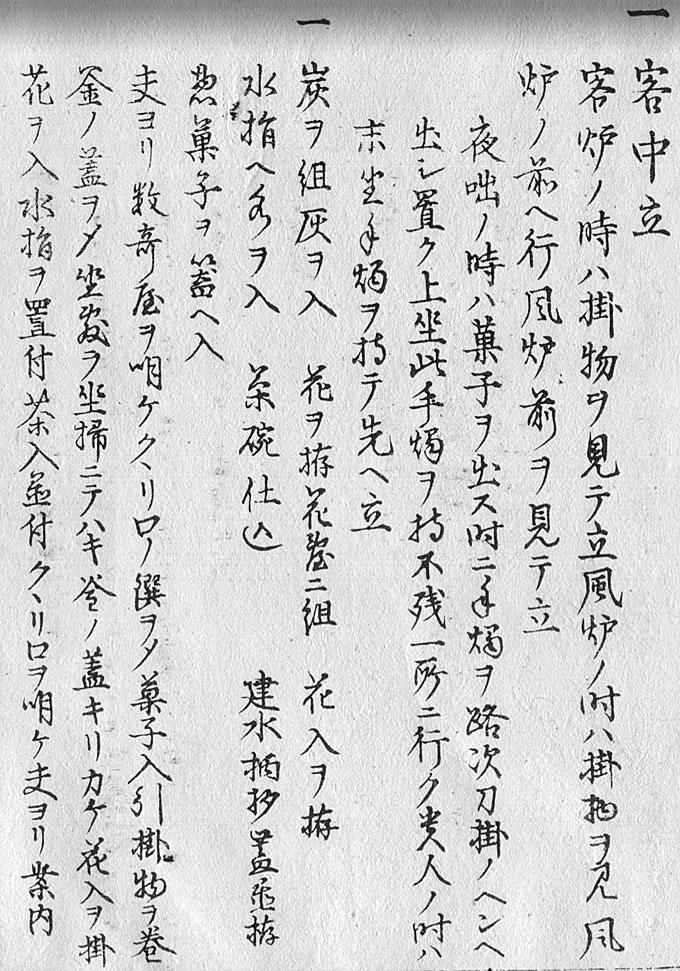 一 客中立
客炉ノ時ハ掛物ヲ見テ立風炉ノ時ハ掛物ヲ見風
炉ノ前ヘ行風炉前ヲ見テ立
夜咄ノ時ハ菓子ヲ出ス時ニ手燭ヲ路次刀掛ノヘンヘ
出シ置ク上坐此手燭ヲ持不残一所ニ行ク貴人ノ時ハ
末坐手燭ヲ持テ先ヘ立
一 炭ヲ組灰ヲ入 花ヲ拵花臺ニ組 花入ヲ拵
水指ヘ水ヲ入 茶碗仕込 建水柄杓蓋置拵
菓子ヲ蓋ヘ入
夫ヨリ数奇屋ヲ明ケクヽリ口ノ ヲ〆菓子入引掛物ヲ巻
釜ノ蓋ヲ〆坐敷ヲ坐掃ニテハキ釜ノ蓋キリカケ花入ヲ掛
花ヲ入水指ヲ置付茶入置付クヽリ口ヲ明ケ夫ヨリ案内